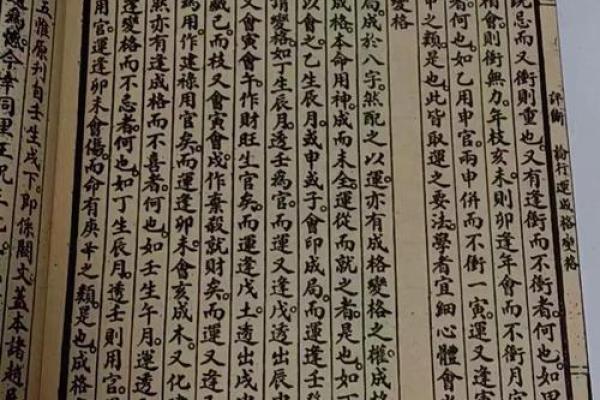 評斷　論行運成格變格
既忌而又衝則重也。又有逢衝而不衝者。何也。如甲
相會則衝無力。年枝亥未。則卯逢年會而不衝月官
者。何也。如乙用申官。兩申併而不衝一寅。運又逢寅
申之類是也。此皆取運之要法。學者宜細心體會
變格
局。成於八字。然配之以運。亦有成格變格之權。成格
成格。本命用神。成而未全。運從而就之者是也。如丁
以會之。乙生辰月。或申或子。會印成局。而運逢壬
謂變格。如丁生辰月。透壬爲官。而運又逢戊。透出辰
又會寅會午。作財旺生官矣。而運逢戊土。透出戌
藏己。而枝又會寅會戌。作棄殺就財矣。而運又逢
爲用。作建祿用官矣。而運逢卯未。會亥成木。又化建
然亦有逢成格而不喜者。何也。如壬生午月。運透
逢變格而不忌者。何也。如丁生辰月。透壬則用官。
用官。運逢卯未會傷。而命有庚辛之類是也。成格
五惟原刊自壬生戌下。即係闕文蓋本諸趙
爲憾今幸同里王